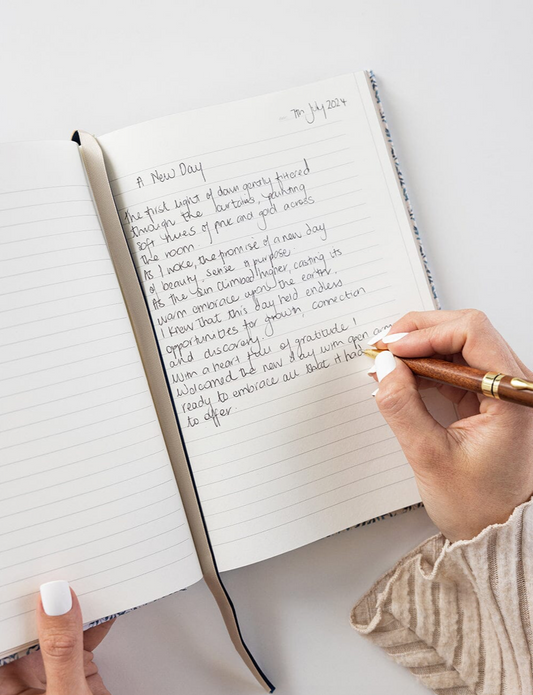 7th July 2024
A New Day
The first light of dawn gently filtered
through the curtains, painting
soft hues of pink and gold across
the room
As I woke, the promise of a new day
of beauty, sense of purpose
As the sun climbed higher, casting its
warm embrace upon the earth.
I knew that this day held endless
opportunities for growth, connection
and discovery.
With a heart full of gratitude I
welcomed the new day with open arm
ready to embrace all that it had
to offer